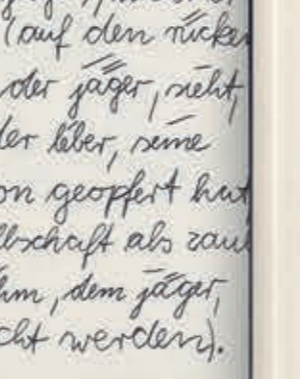 (auf den rücken
der jäger, sieht,
der leber, seine
on geopfert hat
llschaft als zau
hm, dem jäger,
cht werden).